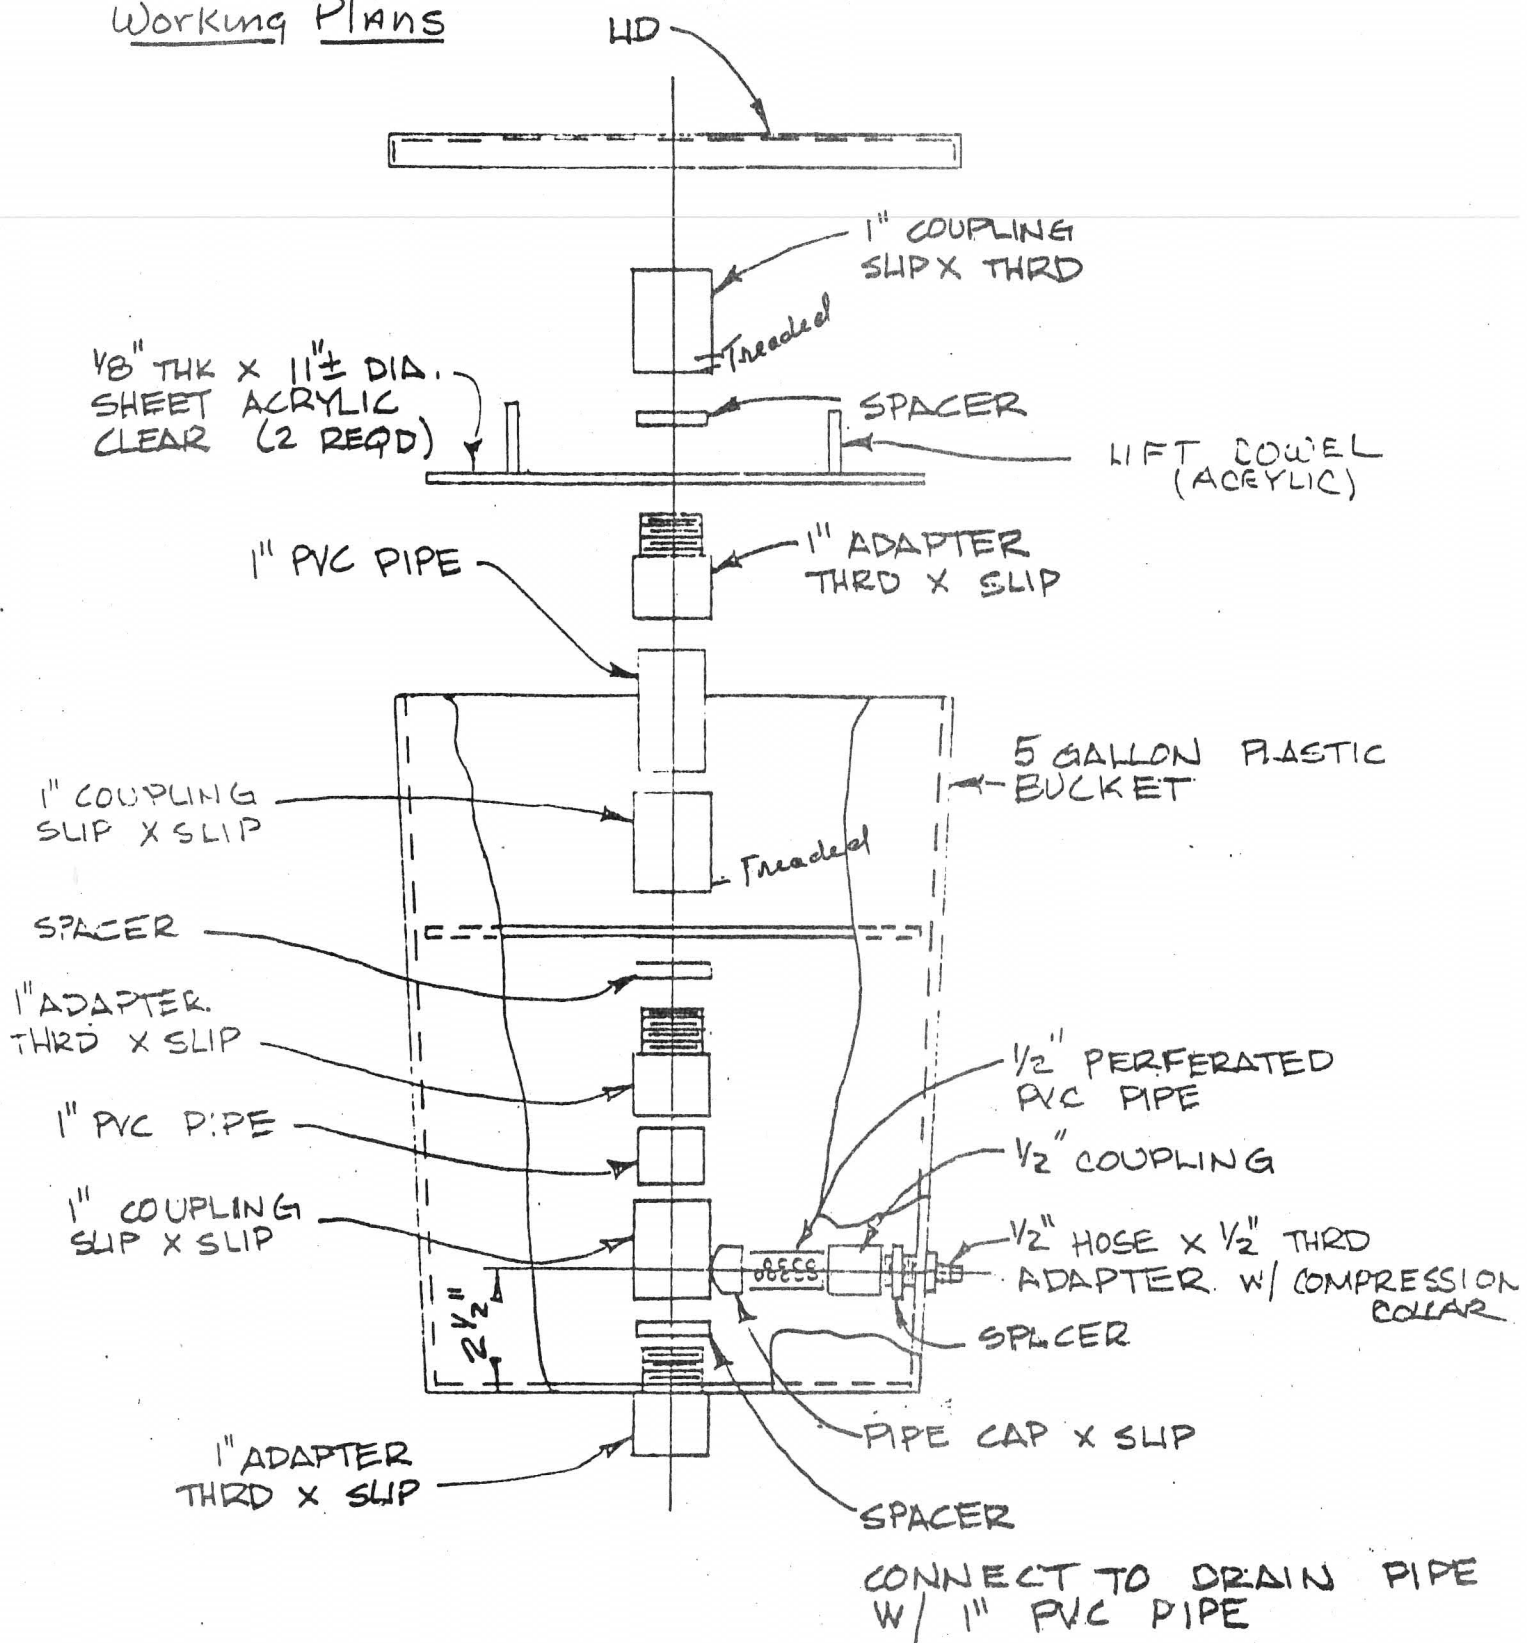 Working Plans
LID
1" COUPLING
SLIP X THRD
Treaded
1/8" THK X 11"± DIA.
SHEET ACRYLIC
CLEAR (2 REQD)
SPACER
LIFT DOWEL
(ACRYLIC)
1" PVC PIPE
1" ADAPTER
THRD X SLIP
5 GALLON PLASTIC
BUCKET
1" COUPLING
SLIP X SLIP
Treaded
SPACER
1" ADAPTER.
THRD X SLIP
1/2" PERFERATED
PVC PIPE
1" PVC PIPE
1/2" COUPLING
1" COUPLING
SLIP X SLIP
1/2" HOSE X 1/2" THRD
ADAPTER W/ COMPRESSION
COLLAR
2 1/2"
SPACER
PIPE CAP X SLIP
1" ADAPTER
THRD X SLIP
SPACER
CONNECT TO DRAIN PIPE
W/ 1" PVC PIPE